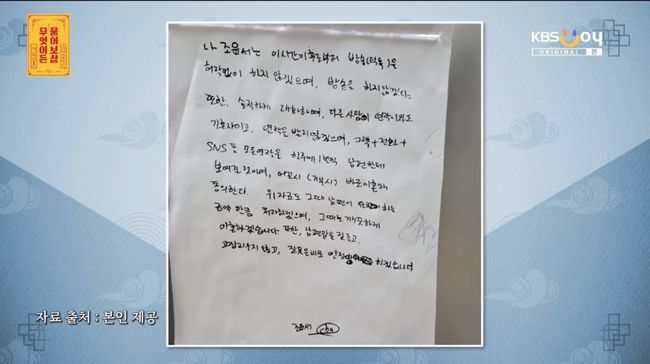 무엇이든
물어보살
KBS Joy
ORIGINAL 본
나 조윤서는 이시간이후로부터 방송(덕톡)은
허락없이 하지 않겠으며, 방송을 하지않겠다.
또한, 솔직하게 대화하며, 다른사람 연락이와도
기혼자이고, 연락을 받지않겠으며, 카톡+전화+
SNS등 모든연락을 하루에 1번씩 남편한테
보여줄것이며, 어길시 (거부시) 바로이혼에
동의한다. 위자료도 그때 남편이 하는
금액 만큼 하겠으며, 그때는 깨끗하게
이혼하겠습니다 또한, 남편말을 잘듣고,
고집피우지 않고, 잘못은바로 인정 하겠습니다
조윤서
자료 출처 : 본인 제공